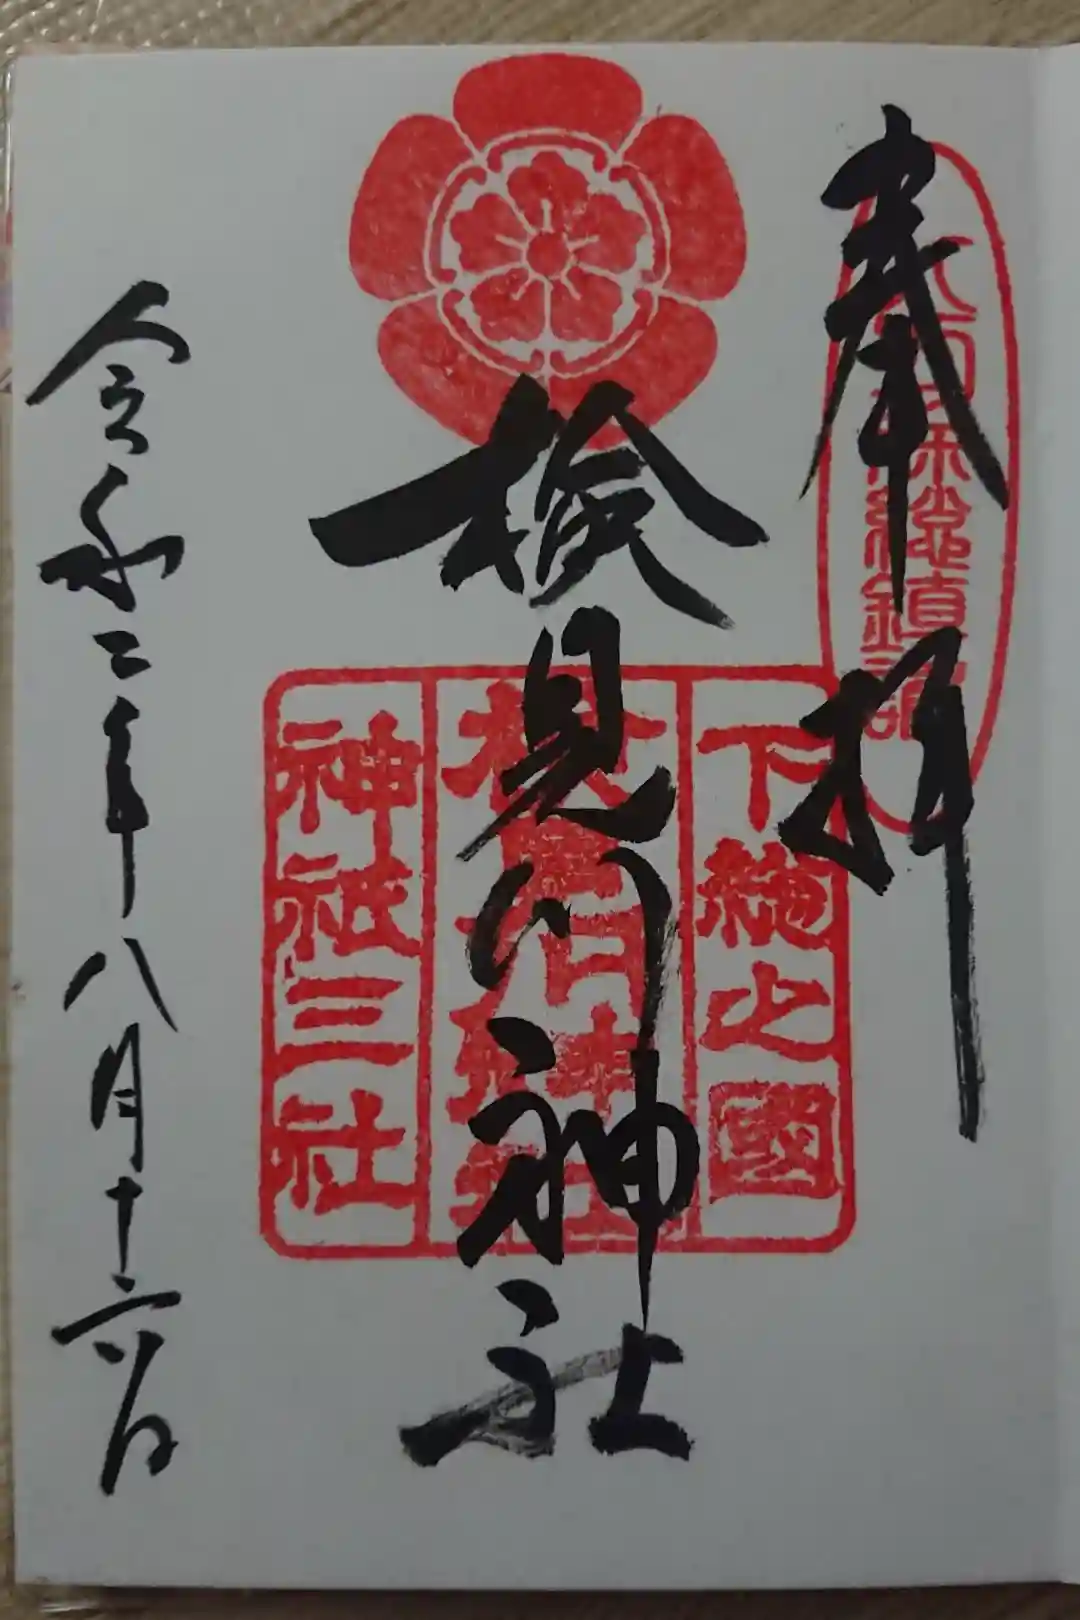 奉拝
八方除総鎮護
検見川神社
下總之國
神祇三社
令和二年八月十六日